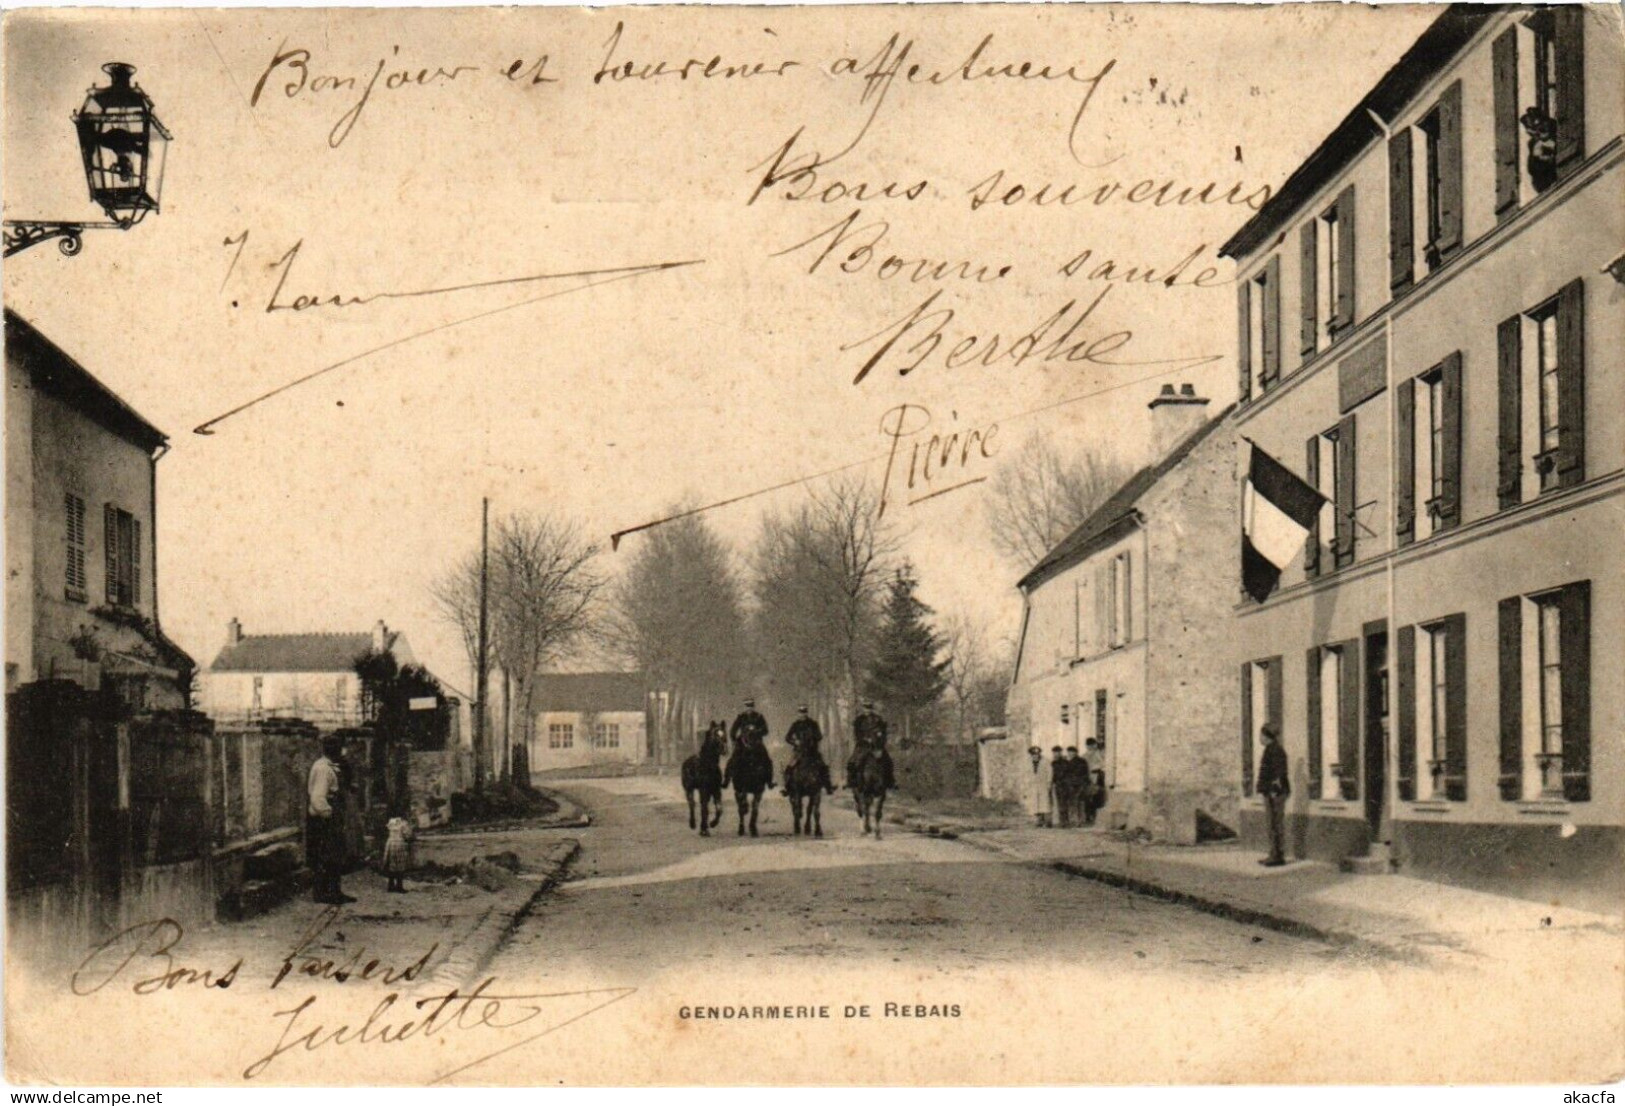 Bonjour et souvenir affectueux
Bons souvenirs
Bonne santé
Berthe
Pierre
Bons baisers
Juliette
GENDARMERIE DE REBAIS
delcampe.net
akacfa